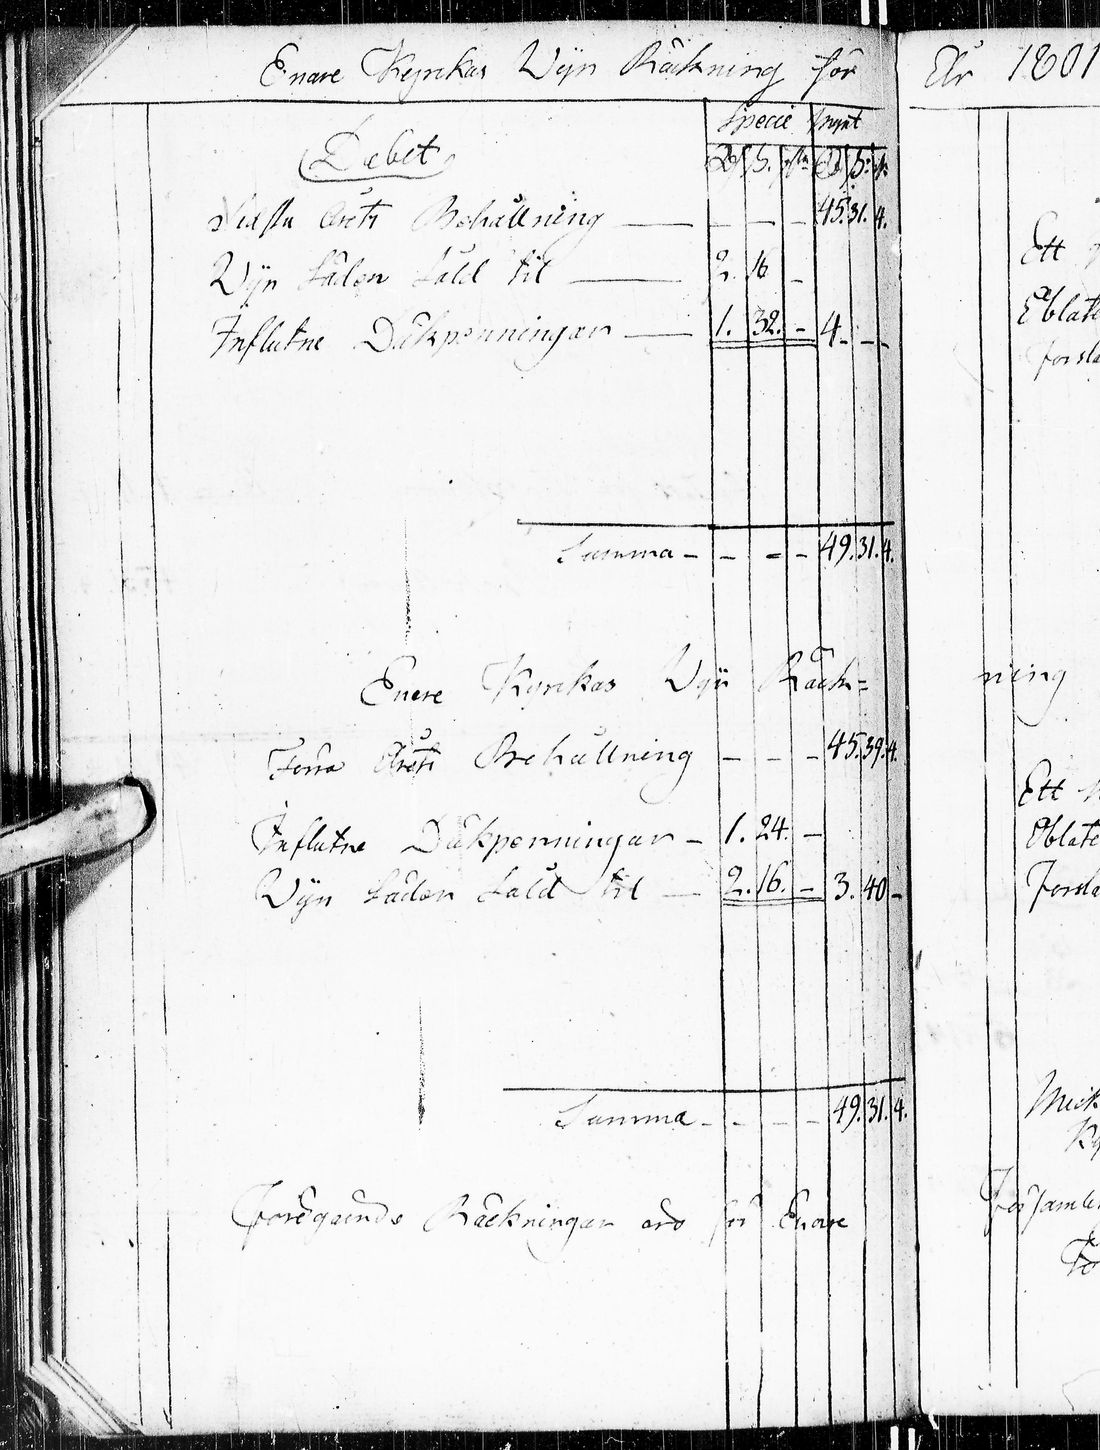 Enare Kyrckas Wijn Räckning för
Specie mynt
Debet
R S. rst. R S. r.
Sidsta Årets Behållning — — — — 45. 31. 4.
Wijn Säden Såld til — 2. 16 —
Influtne Däkpenningar — 1. 32. — 4. — —
Summa — — — — 49. 31. 4.
Enare Kyrckas Wijn Räck=
Förra Årets Behållning — — — 45. 39. 4.
Influtne Däkpenningar — 1. 24. —
Wijn Säden Såld til — 2. 16. — 3. 40 —
Summa — — — — 49. 31. 4.
Föregående Räckningar äro för Enare
År 1801
Ett
Oblate
forsla
ning
Ett
Oblate
Forsla
Församle